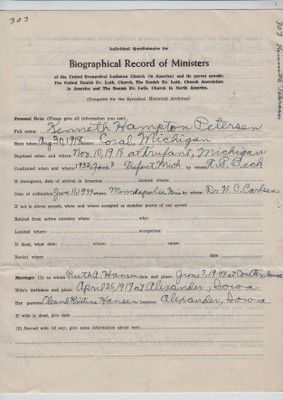 303
Individual Questionnaire for
Biographical Record of Ministers
of the United Evangelical Lutheran Church (in America) and its parent synods:
The United Danish Ev. Luth. Church, The Danish Ev. Luth. Church Association
in America and The Danish Ev. Luth. Church in North America.
(Compiled for the Synodical Historical Archives)
Personal Data: (Please give all information you can).
Full name Kenneth Hampton Petersen
Born when: Aug 30, 1918 where: Coral, Michigan
Baptized when and where: Nov. 10, 1918 at Trufant, Michigan
Confirmed when and where: 1932 June Trufant Mich by whom:
If immigrant, date of arrival in America: located where:
Date of ordination: June 18, 1944 where: Minneapolis, Minn by whom: Dr. N. C. Carlsen
If not in above synods, when and where accepted as member pastor of any synod:
Retired from active ministry when: why:
Located where: occupation:
If dead, what date: where: cause:
Buried where date
Marriage: (1) to whom Ruth A. Hansen date and place: June 7, 1944 at
Wife's birthdate and place: April 25, 1919 at Alexander, Iowa
Her parents: Hansen location: Alexander, Iowa
If wife is dead, give date
(2) Second wife (if any; give same information about her).